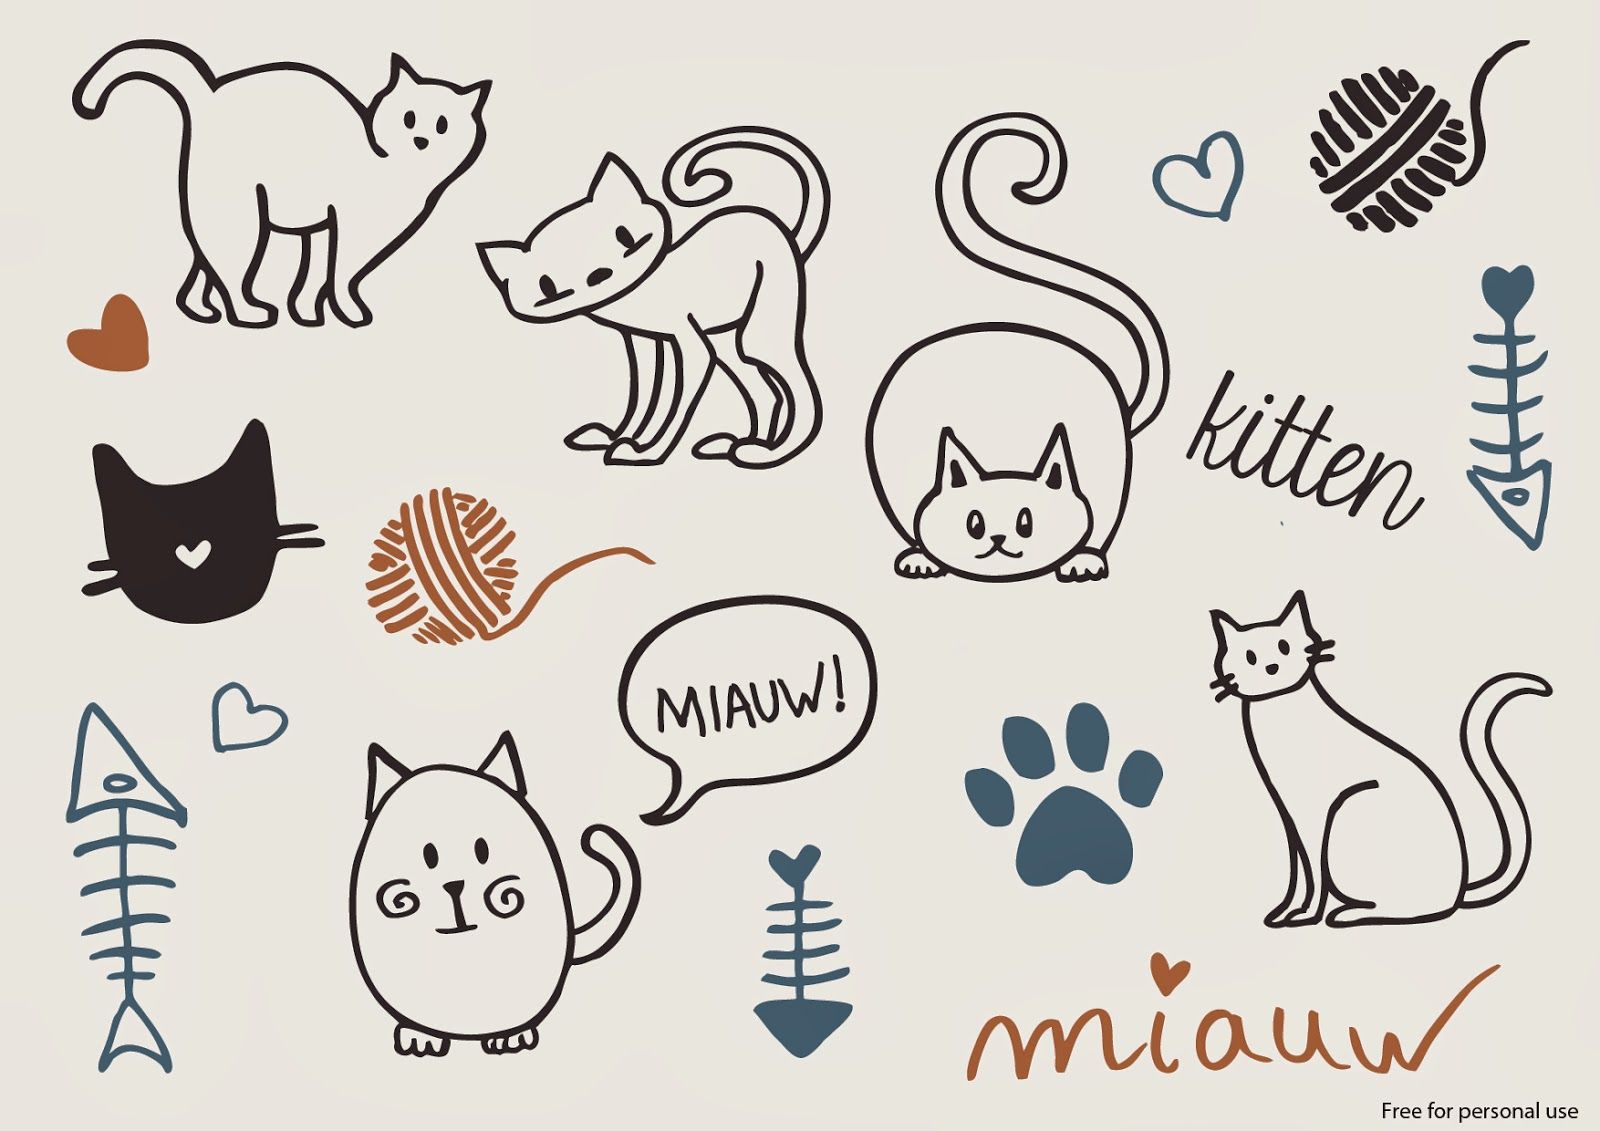 kitten
MIAUW!
miauw
Free for personal use